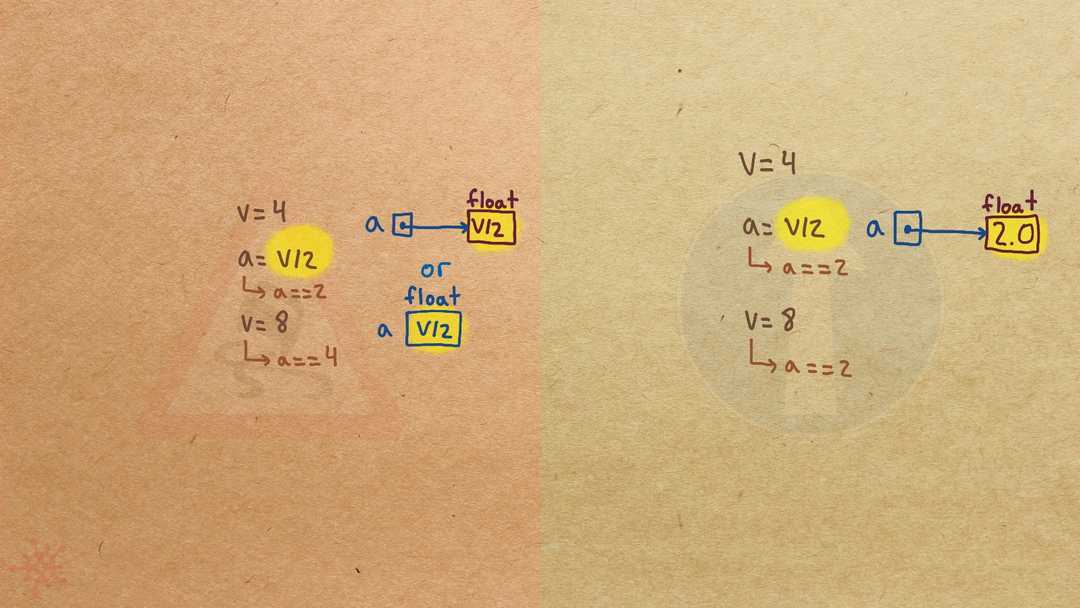 v=4
a= v/2
a==2
v=8
a==4
a
float
v/2
or
float
a v/2
V=4
a= v/2
a==2
v=8
a==2
a
float
2.0